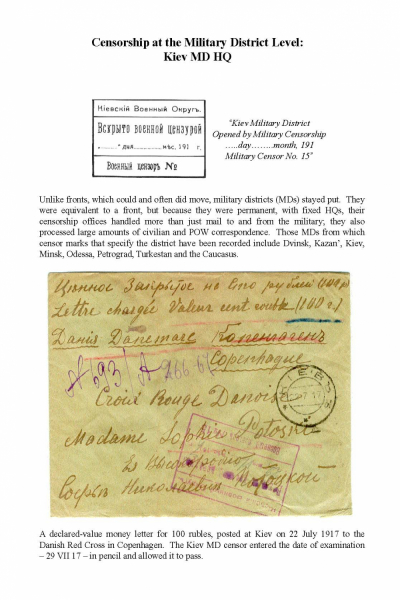 Censorship at the Military District Level:
Kiev MD HQ
Кіевскій Военный Округъ.
Вскрыто военной цензурой
„........“ дня................мѣс. 191 г.
Военный цензоръ №
"Kiev Military District
Opened by Military Censorship
…..day……..month, 191
Military Censor No. 15"
Unlike fronts, which could and often did move, military districts (MDs) stayed put. They
were equivalent to a front, but because they were permanent, with fixed HQs, their
censorship offices handled more than just mail to and from the military; they also
processed large amounts of civilian and POW correspondence. Those MDs from which
censor marks that specify the district have been recorded include Dvinsk, Kazan', Kiev,
Minsk, Odessa, Petrograd, Turkestan and the Caucasus.
Цѣнное Закрытое на сто рублей (100 р)
Lettre chargée Valeur cent roubles (100 r.)
Danis Danemarc Копенгагенъ
Copenhague
Croix Rouge Danois
Madame Sophie Pototska
Ея
Софьѣ Николаевнѣ Потоцкой
A declared-value money letter for 100 rubles, posted at Kiev on 22 July 1917 to the
Danish Red Cross in Copenhagen. The Kiev MD censor entered the date of examination
– 29 VII 17 – in pencil and allowed it to pass.